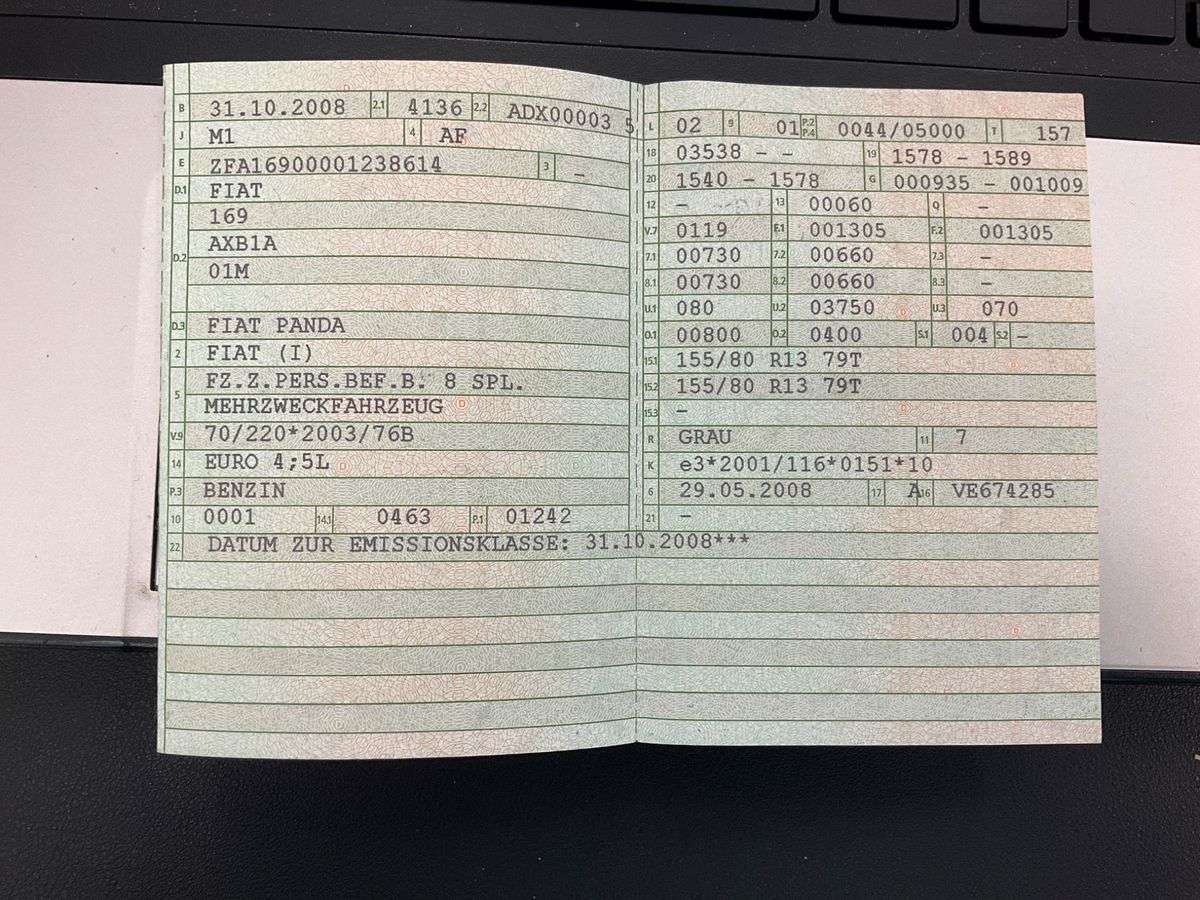 B 31.10.2008 2.1 4136 2.2 ADX00003 5
J M1 4 AF
E ZFA16900001238614 3 –
D.1 FIAT
D.2 169
AXB1A
01M
D.3 FIAT PANDA
2 FIAT (I)
5 FZ.Z.PERS.BEF.B. 8 SPL.
MEHRZWECKFAHRZEUG
V.9 70/220*2003/76B
14 EURO 4;5L
P.3 BENZIN
10 0001 14.1 0463 P.1 01242
L 02 9 01 P.2 P.4 0044/05000 T 157
18 03538 – – 19 1578 – 1589
20 1540 – 1578 G 000935 – 001009
12 – 13 00060 Q –
V.7 0119 F.1 001305 F.2 001305
7.1 00730 7.2 00660 7.3 –
8.1 00730 8.2 00660 8.3 –
U.1 080 U.2 03750 U.3 070
O.1 00800 O.2 0400 S.1 004 S.2 –
15.1 155/80 R13 79T
15.2 155/80 R13 79T
15.3 –
R GRAU 11 7
K e3*2001/116*0151*10
6 29.05.2008 17 A 16 VE674285
21 –
22 DATUM ZUR EMISSIONSKLASSE: 31.10.2008***